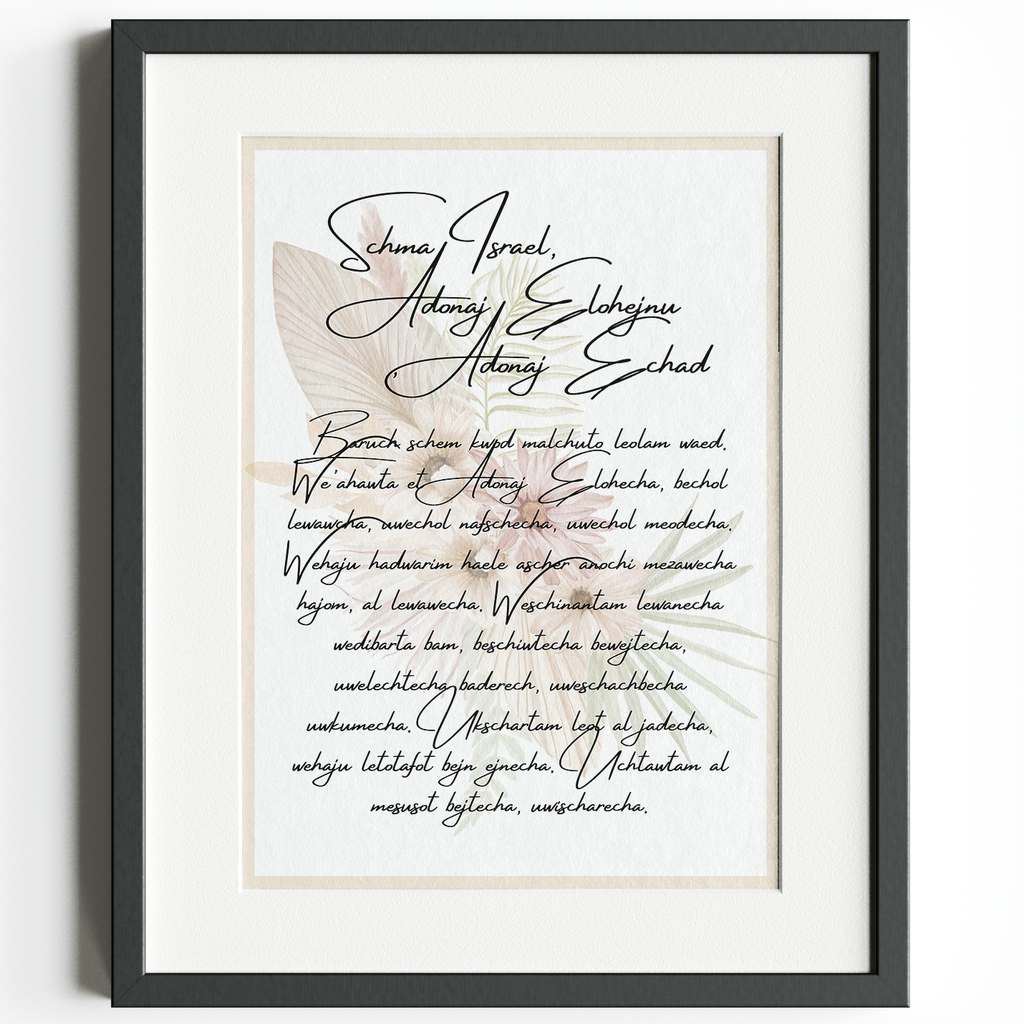 Schma Israel,
Adonaj Elohejnu
, Adonaj Echad
Baruch schem kwpd malchuto leolam waed.
We'ahawta et Adonaj Elohecha, bechol
lewawcha, uwechol nafschecha, uwechol meodecha.
Wehaju hadwarim haele ascher anochi mezawecha
hajom, al lewawecha. Weschinantam lewanecha
wedibarta bam, beschiwtecha bewejtecha,
uwelechtecha baderech, uweschachbecha
uwkumecha. Ukschartam leot al jadecha,
wehaju letotafot bejn ejnecha. Uchtawtam al
mesusot bejtecha, uwischarecha.